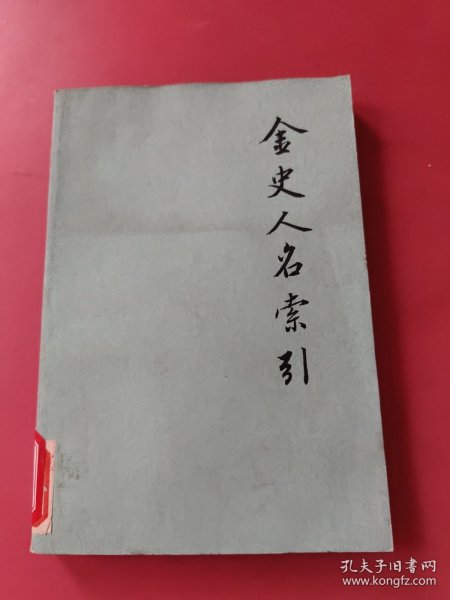 金史人名索引
孔夫子旧书网
www.kongfz.com